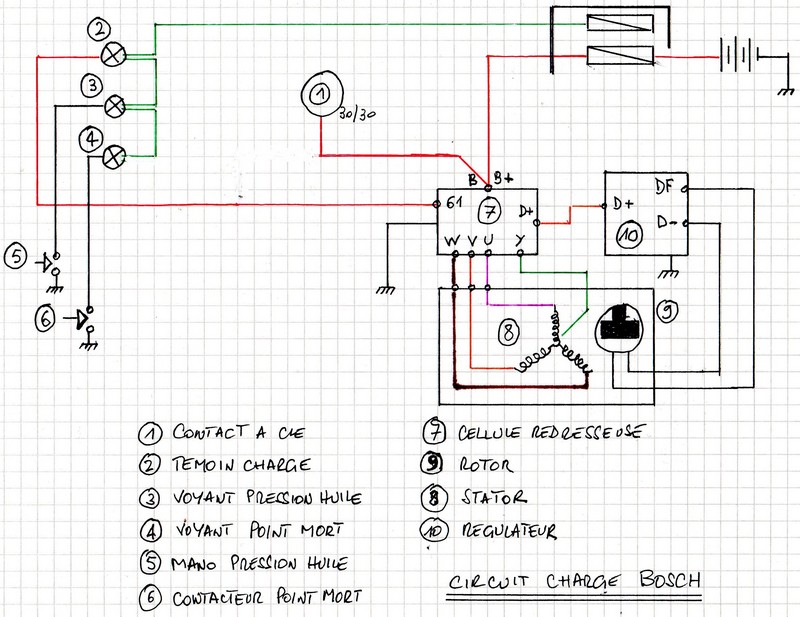 2
3
1
30/30
4
B B+
61
7
D+
D+
DF
D-
10
W V U Y
5
6
8
9
1 CONTACT A CLE
2 TEMOIN CHARGE
3 VOYANT PRESSION HUILE
4 VOYANT POINT MORT
5 MANO PRESSION HUILE
6 CONTACTEUR POINT MORT
7 CELLULE REDRESSEUSE
9 ROTOR
8 STATOR
10 REGULATEUR
CIRCUIT CHARGE BOSCH